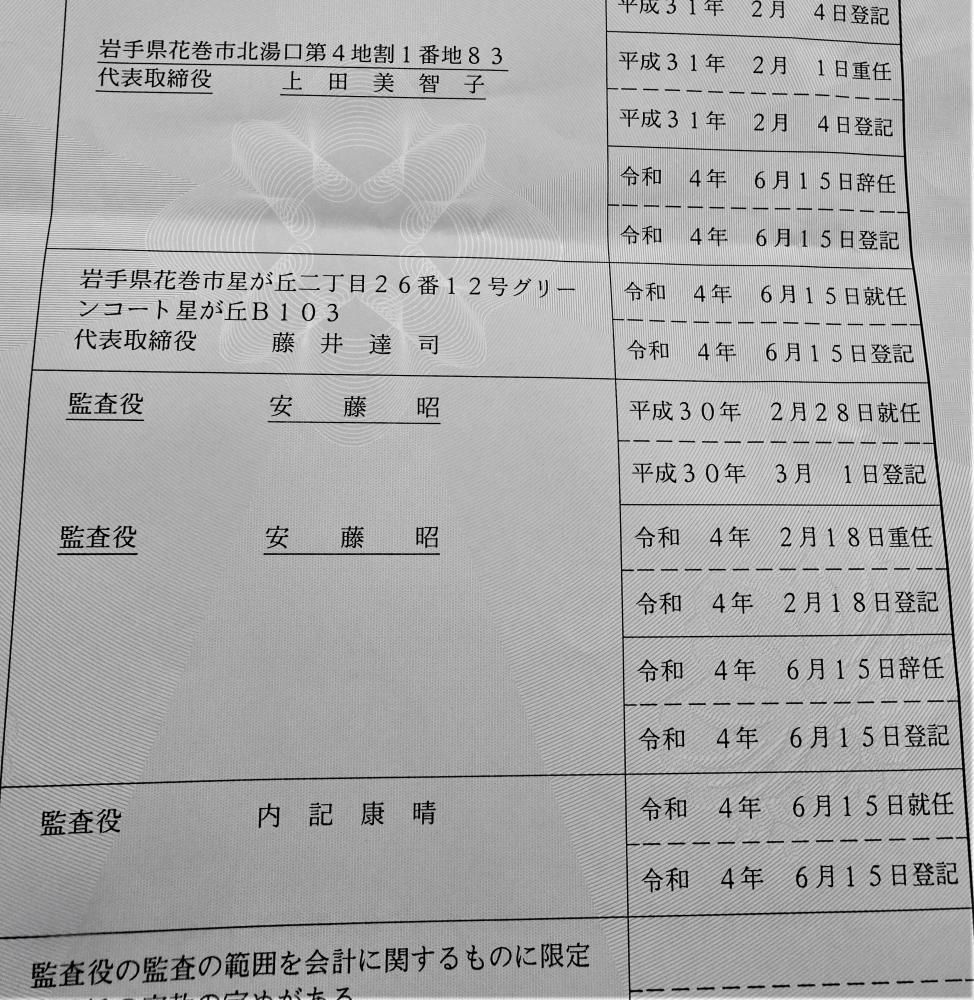 平成３１年　２月　４日登記
岩手県花巻市北湯口第４地割１番地８３
代表取締役　上田美智子
平成３１年　２月　１日重任
平成３１年　２月　４日登記
令和　４年　６月１５日辞任
令和　４年　６月１５日登記
岩手県花巻市星が丘二丁目２６番１２号グリー
ンコート星が丘Ｂ１０３
代表取締役　藤井達司
令和　４年　６月１５日就任
令和　４年　６月１５日登記
監査役　安藤昭
平成３０年　２月２８日就任
平成３０年　３月　１日登記
監査役　安藤昭
令和　４年　２月１８日重任
令和　４年　２月１８日登記
令和　４年　６月１５日辞任
令和　４年　６月１５日登記
監査役　内記康晴
令和　４年　６月１５日就任
令和　４年　６月１５日登記
監査役の監査の範囲を会計に関するものに限定
の定めがある